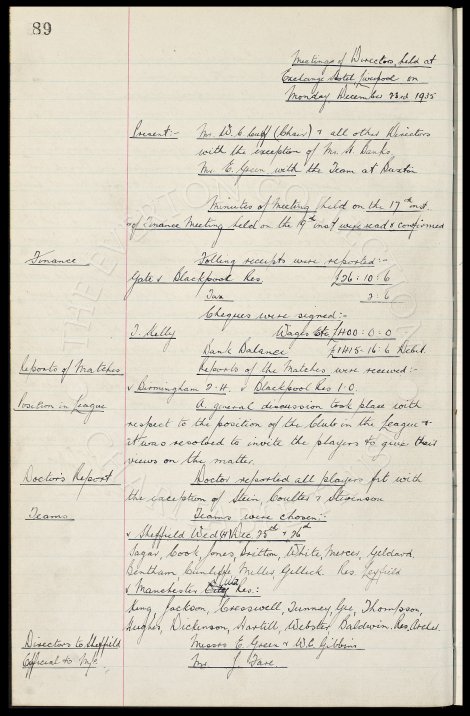 89
Meetings of Directors, held at
Exchange Hotel, Liverpool on
Monday December 23rd 1935
Present:- Mr. W. C. Cuff (Chair) & all other Directors
with the exception of Mr. A. Banks
Mr. E. Green with the Team at Buxton
Minutes of Meeting held on the 17th inst.
& of Finance Meeting held on the 19th inst were read & confirmed
Finance Folling receipts were reported:-
Gate v Blackpool Res. £26:10:6
Tax 2:6
Cheques were signed:-
J. Kelly Wages Etc £400:0:0
Bank Balance 16:6 Debit.
Reports of Matches Reports of the Matches were received:-
v Birmingham 2-4. v Blackpool Res 1-0.
Position in League A general discussion took place with
respect to the position of the Club in the League &
it was resolved to invite the players to give their
views on the matter.
Doctor's Report Doctor reported all players fit with
the exception of Stein, Coulter & Stevenson
Teams Teams were chosen:-
v Sheffield Wed Dec. 25th & 26th
Sagar, Cook, Jones, Britton, White, Mercer, Geldard
Bentham, Cunliffe, Miller, Gillick Res. Leyfield
v Manchester Res:
King, Jackson, Cresswell, Tunney, Gee, Thompson,
Hughes, Dickinson, Hartill, Webster, Baldwin. Res. Archer.
Directors to Sheffield Messrs E. Green & W.C. Gibbins
Official to M/c. Mr. J. Fare.
THE EVERTON COLLECTION